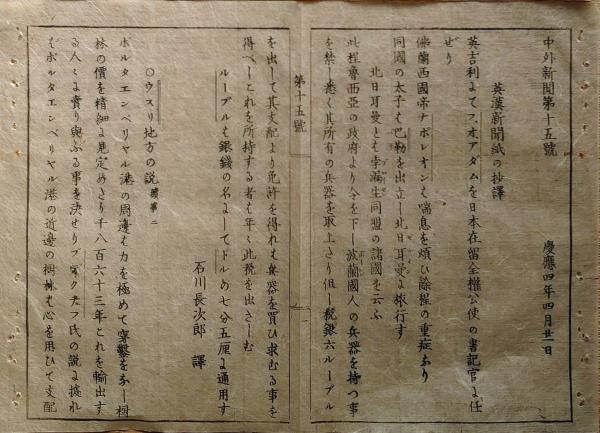 中外新聞第十五號　慶應四年四月廿一日
英漢新聞紙の抄譯
英吉利よてフ、オ、アダムを日本在留全權公使の書記官よ任
ぜり
佛蘭西國帝ナポレオンも喘息を煩ひ餘程の重症なり
同國の太子も巴勒を出立し北日耳曼よ旅行す
北日耳曼とも孛漏生同盟の諸國を云ふ
此程魯西亞の政府より令を下し波蘭國人の兵器を持つ事
を禁し悉く其所有の兵器を取上たり但し税銀六ルーブル
第十五號
を出して其支配より免許を得れも兵器を買ひ求むる事を
得べしこれを所持する者も年々此税を出さしむ
ルーブルも銀錢の名よしてドルの七分五厘よ通用す
石川長次郎　譯
○ウスリ地方の説 續第二
ボルタエンペリヤル港の周邊も力を極めて穿鑿をなし樹
林の價を精細よ見定めたり千八百六十三年これを輸出す
る人々よ賣り與ふる事を決せりブ氏の説よ據れ
ボルタエンペリヤル港の近邊の樹林も心を用ひて支配